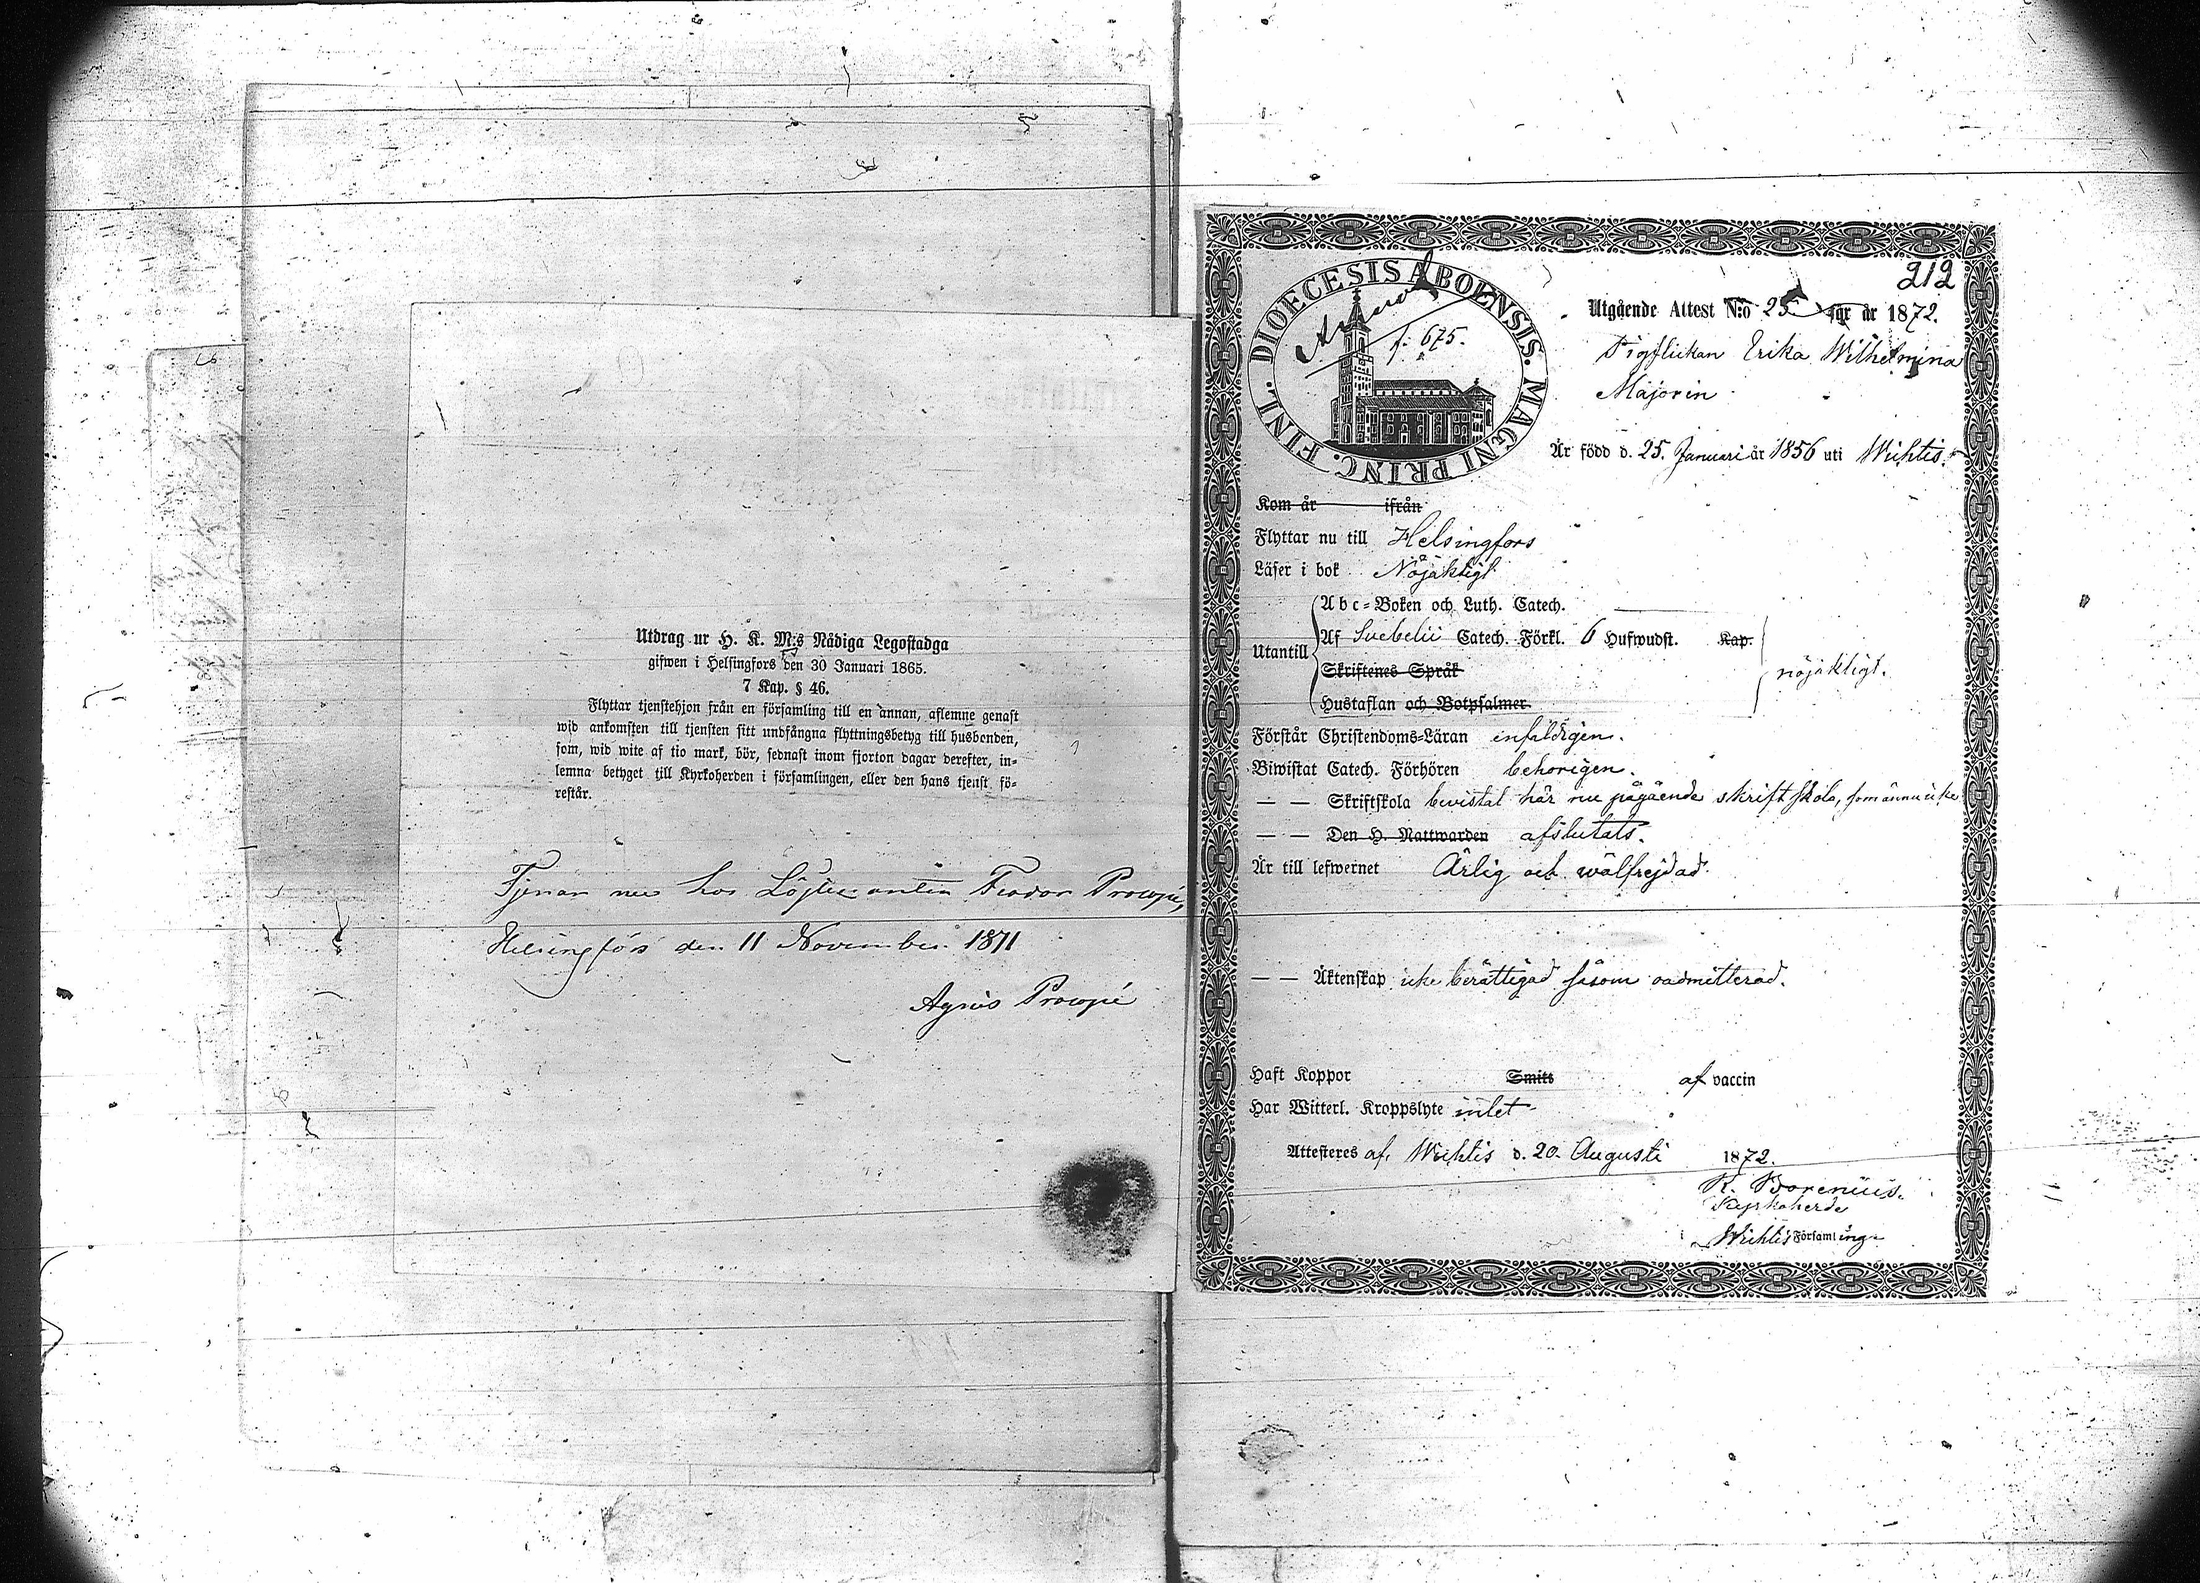 Utdrag ur H. K. M:s Nådiga Legostadga
gifwen i Helsingfors den 30 Januari 1865.
7 Kap. § 46.
Flyttar tjenstehjon från en församling till en annan, aflemne genast
wid ankomsten till tjensten sitt undfångna flyttningsbetyg till husbonden,
som, wid wite af tio mark, bör, sednast inom fjorton dagar derefter, in-
lemna betyget till Kyrkoherden i församlingen, eller den hans tjenst fö-
restår.
Tjenar nu hos Löjtenanten Feodor Procopé,
Helsingfors den 11 November 1871
Agnès Procopé
212
DIOECESIS ABOENSIS. MAGNI PRINC. FINL.
f. 675.
Utgående Attest N:o 25 för år 1872.
Pigflickan Erika Wilhelmina
Majorin
Är född d. 25. Januari år 1856 uti Wichtis.
Kom år ifrån
Flyttar nu till Helsingfors
Läser i bok Nöjaktigt
Utantill
Abc-Boken och Luth. Catech.
Af Svebelii Catech. Förkl. 6 Hufwudst. Kap.
Skriftenes Språk
Hustaflan och Botpsalmer.
nöjaktigt.
Förstår Christendoms-Läran enfaldigen.
Biwistat Catech. Förhören behörigen.
— — Skriftskola bevistat här nu pågående skriftskola, som ännu icke
— — Den H. Nattwarden afslutats.
Är till lefwernet Ärlig och wälfrejdad.
— — Äktenskap icke berättigad såsom oadmitterad.
Haft Koppor Smitt af vaccin
Har Witterl. Kroppslyte intet
Attesteres af, Wichtis d. 20. Augusti 1872.
K. Borenius.
Kyrkoherde
i Wichtis Församling